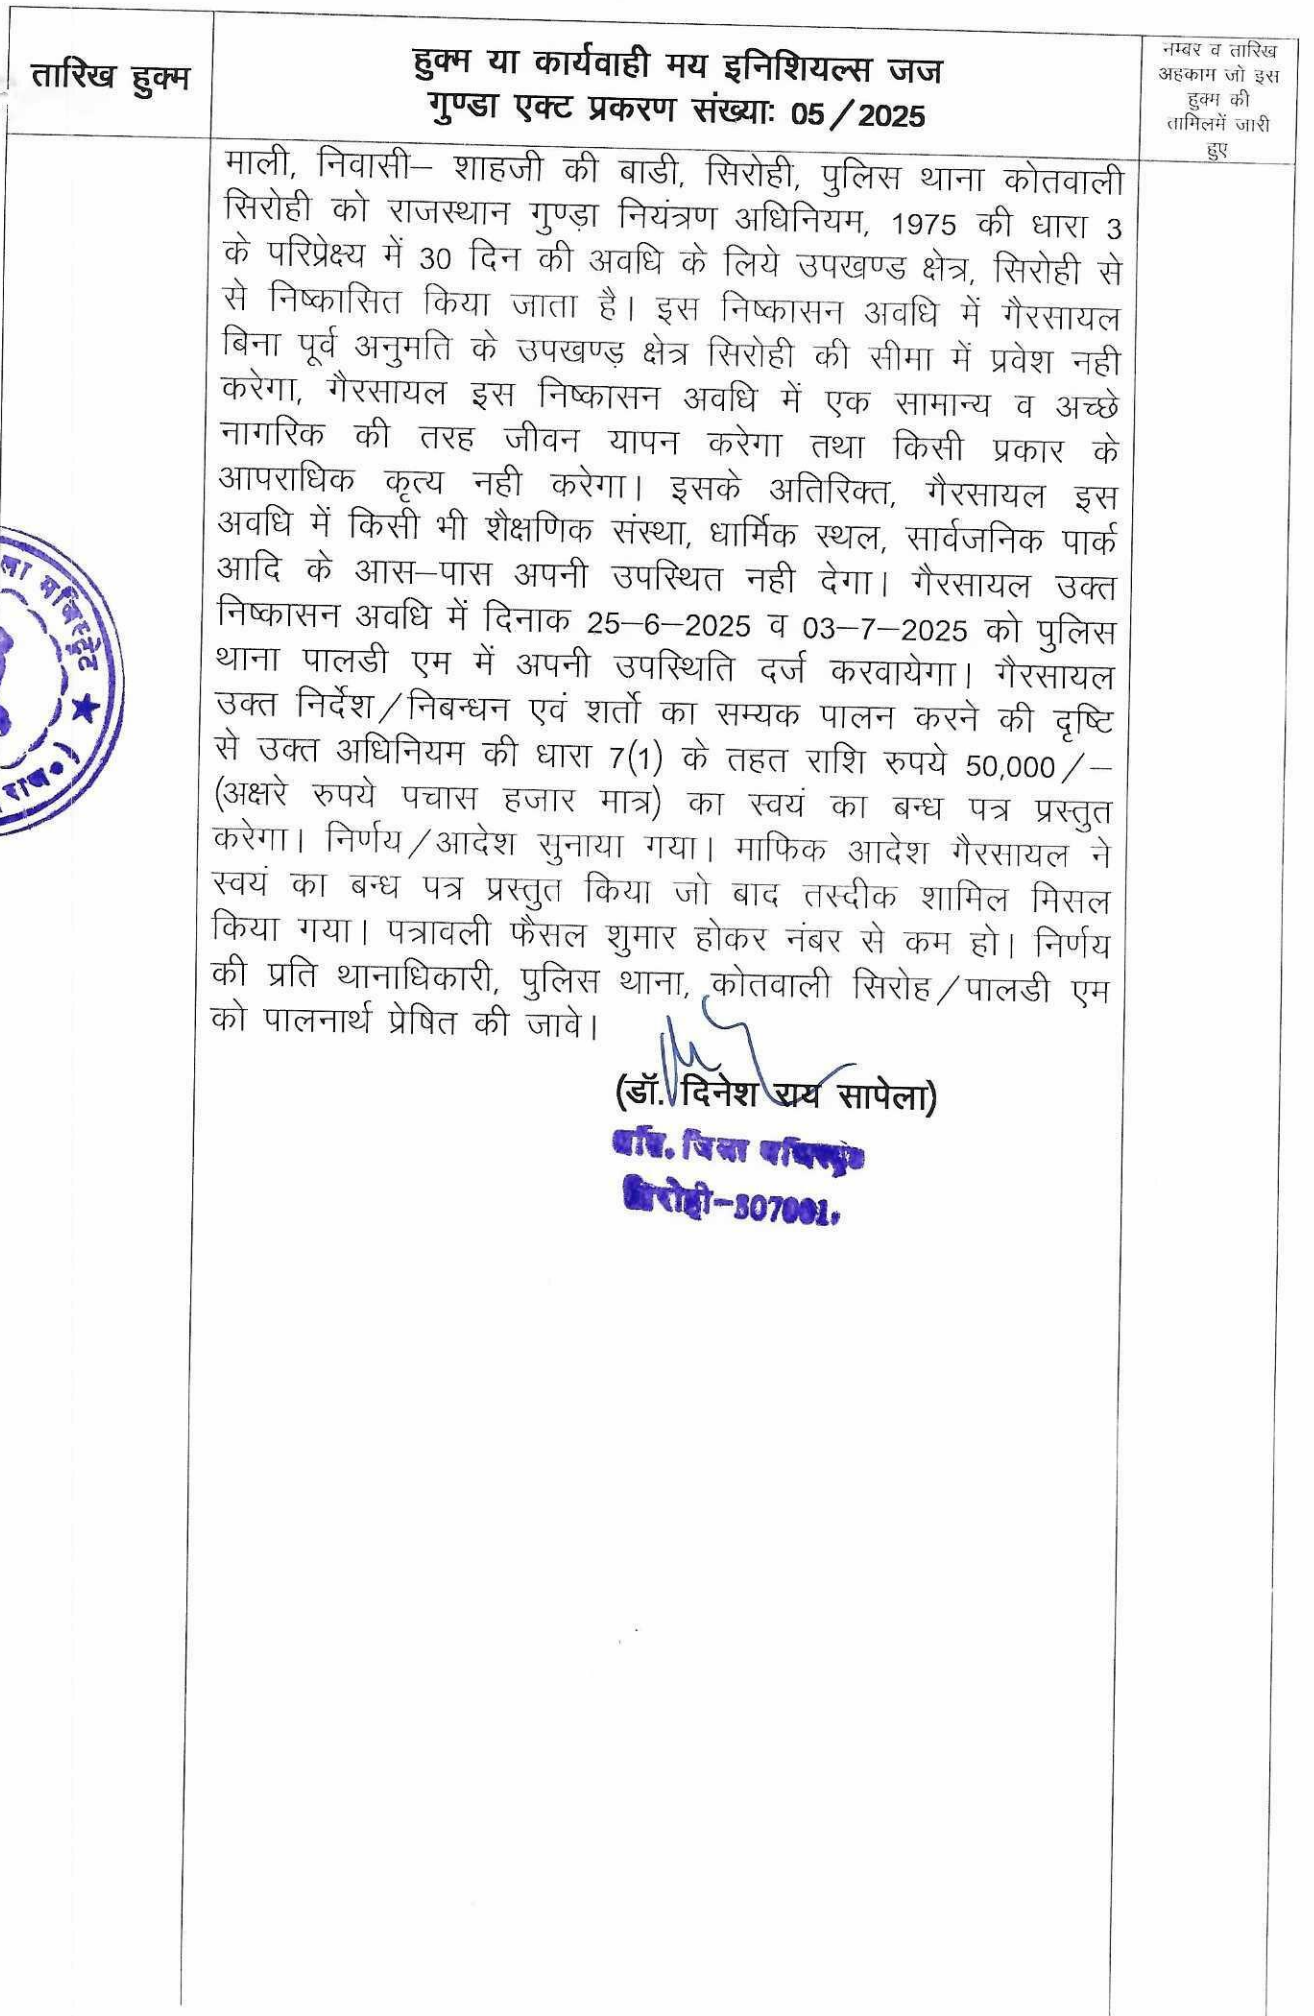 तारिख हुक्म
हुक्म या कार्यवाही मय इनिशियल्स जज
गुण्डा एक्ट प्रकरण संख्याः 05/2025
नम्बर व तारिख
अहकाम जो इस
हुक्म की
तामिलमें जारी
हुए
माली, निवासी– शाहजी की बाडी, सिरोही, पुलिस थाना कोतवाली
सिरोही को राजस्थान गुण्ड़ा नियंत्रण अधिनियम, 1975 की धारा 3
के परिप्रेक्ष्य में 30 दिन की अवधि के लिये उपखण्ड क्षेत्र, सिरोही से
से निष्कासित किया जाता है। इस निष्कासन अवधि में गैरसायल
बिना पूर्व अनुमति के उपखण्ड़ क्षेत्र सिरोही की सीमा में प्रवेश नही
करेगा, गैरसायल इस निष्कासन अवधि में एक सामान्य व अच्छे
नागरिक की तरह जीवन यापन करेगा तथा किसी प्रकार के
आपराधिक कृत्य नही करेगा। इसके अतिरिक्त, गैरसायल इस
अवधि में किसी भी शैक्षणिक संस्था, धार्मिक स्थल, सार्वजनिक पार्क
आदि के आस–पास अपनी उपस्थित नही देगा। गैरसायल उक्त
निष्कासन अवधि में दिनाक 25–6–2025 व 03–7–2025 को पुलिस
थाना पालडी एम में अपनी उपस्थिति दर्ज करवायेगा। गैरसायल
उक्त निर्देश/निबन्धन एवं शर्तो का सम्यक पालन करने की दृष्टि
से उक्त अधिनियम की धारा 7(1) के तहत राशि रुपये 50,000/–
(अक्षरे रुपये पचास हजार मात्र) का स्वयं का बन्ध पत्र प्रस्तुत
करेगा। निर्णय/आदेश सुनाया गया। माफिक आदेश गैरसायल ने
स्वयं का बन्ध पत्र प्रस्तुत किया जो बाद तस्दीक शामिल मिसल
किया गया। पत्रावली फैसल शुमार होकर नंबर से कम हो। निर्णय
की प्रति थानाधिकारी, पुलिस थाना, कोतवाली सिरोह/पालडी एम
को पालनार्थ प्रेषित की जावे।
(डॉ. दिनेश राय सापेला)
जिला
सिरोही-307001.
ला मजिस्ट्रेट ★
राज०)